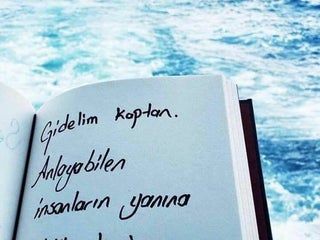 Gidelim kaptan.
Anlayabilen
insanların yanına